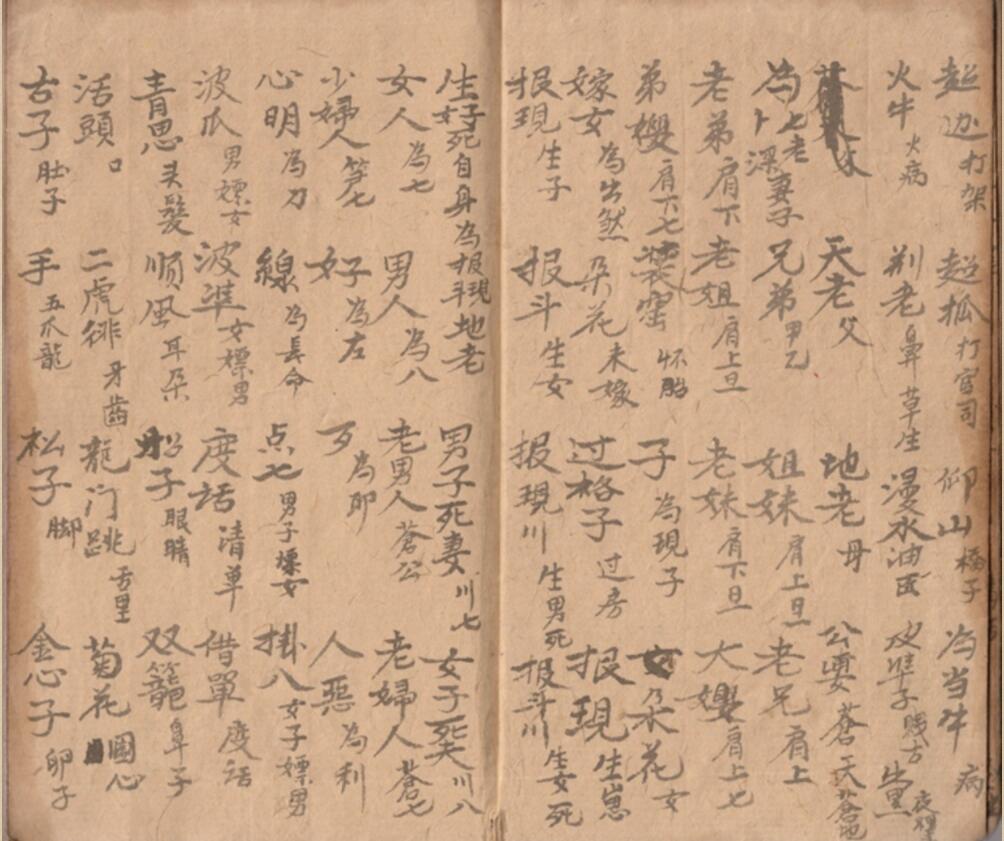 超边 打架 超狐 打官司 仰山 橋子 为当牛 病
火牛 火病 荆老 鼻草生 漫水油 子
天老 父 地老 母 公婆 蒼天蒼地
为卜 七老 深妻子 兄弟 甲乙 姐妹 肩上旦 老兄 肩上
老弟 肩下 老姐 肩上旦 老妹 肩下旦 大嬰 肩上七
弟樱 肩下七 窑 怀胎 子 为現子 女 朵花 女
嫁女 为出然 朵花 未嫁 过格子 过房 报現 生崽
报現 生子 报斗 生女 报現川 生男死 报斗川 生女死
生好死自身为报現斗 地老 男子死妻 川七 女子死夫 川八
女人 为七 男人 为八 老男人 蒼公 老婦人 蒼七
少婦人 笋七 好 为左 歹 为卯 人惡 为利
心明 为刀 線 为長命 点七 男子嫖女 掛八 女子嫖男
波瓜 男嫖女 波準 女嫖男 度話 清单 借單 度話
青思 头髮 顺風 耳朵 船子 眼睛 双籠 鼻子
活頭 口 二虎徘 牙齒 龍门跳 舌里 菊花 圆心
古子 肚子 手 五爪龍 松子 脚 金心子 卵子